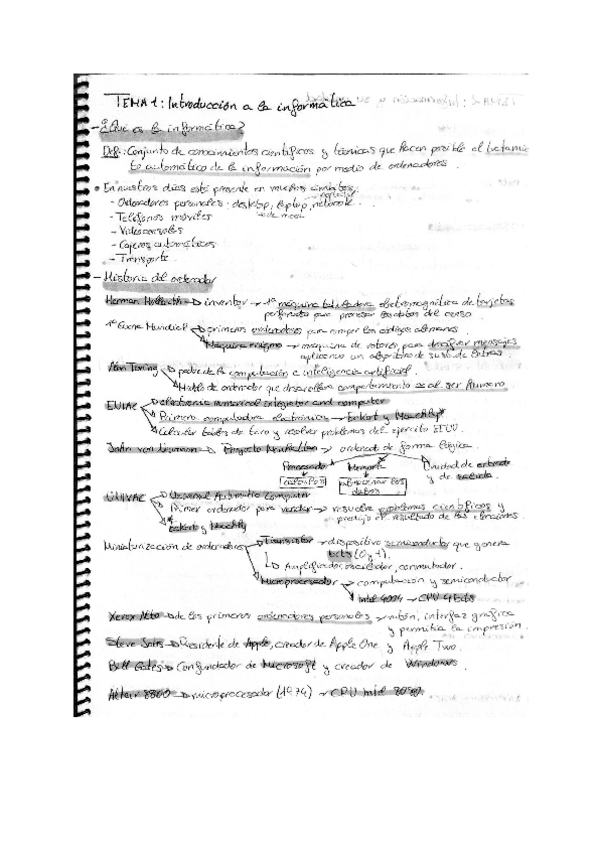 TEMA 1: Introducción a la informática
- ¿Qué es la informática?
Def: Conjunto de conocimientos científicos y técnicas que hacen posible el tratamie
to automático de la información por medio de ordenadores.
• En nuestros días está presente en muchos ámbitos
- Ordenadores personales: desktop, laptop, netbook.
- Teléfonos móviles
- Videoconsolas
- Cajeros automáticos
- Transporte
- Historia del ordenador
Herman Hollerith → inventor → 1ª máquina tabuladora electromagnética de tarjetas
perforadas para procesar los datos del censo
1ª Guerra Mundial → primeros ordenadores para romper los códigos alemanes.
Máquina enigma → máquina de rotores para descifrar mensajes
aplicando un algoritmo de de letras
Alan Turing → padre de la computación e inteligencia artificial.
Habló de ordenador que desarrollara comportamiento = al ser humano
ENIAC → electronic numerical integrator and computer
Primera computadora electrónica → Eckert y Mauchly
Calcular tablas de tiro y resolver problemas del ejército EEUU.
John von Neumann → Proyecto → ordenador de forma lógica.
Procesador Memoria Unidad de entrada
y de salida
almacenar los
datos
UNIVAC → Universal Automatic Computer
Primer ordenador para vender → resuelve problemas científicos y
predijo el resultado de las elecciones
Eckert y Mauchly
Miniaturización de ordenadores → Transistor → dispositivo semiconductor que genera
bits (0 y 1).
Amplificador, oscilador, conmutador.
Microprocesador → computación y semiconductor
Intel 4004 → CPU 4 bits
Xerox Alto → de los primeros ordenadores personales → ratón, interfaz gráfica
y permitía la impresión.
Steve Jobs → Presidente de Apple, creador de Apple One y Apple Two.
Bill Gates → Cofundador de Microsoft y creador de Windows.
Altair 8800 → microprocesador (1974) → CPU intel 8080.